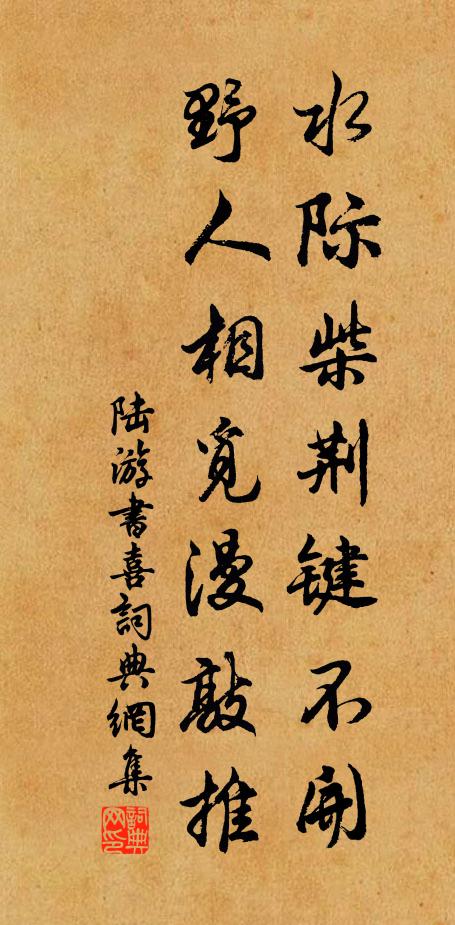 水际柴荆键不开
野人相觅漫敲推
陆游书喜詞典網集
詞典网印